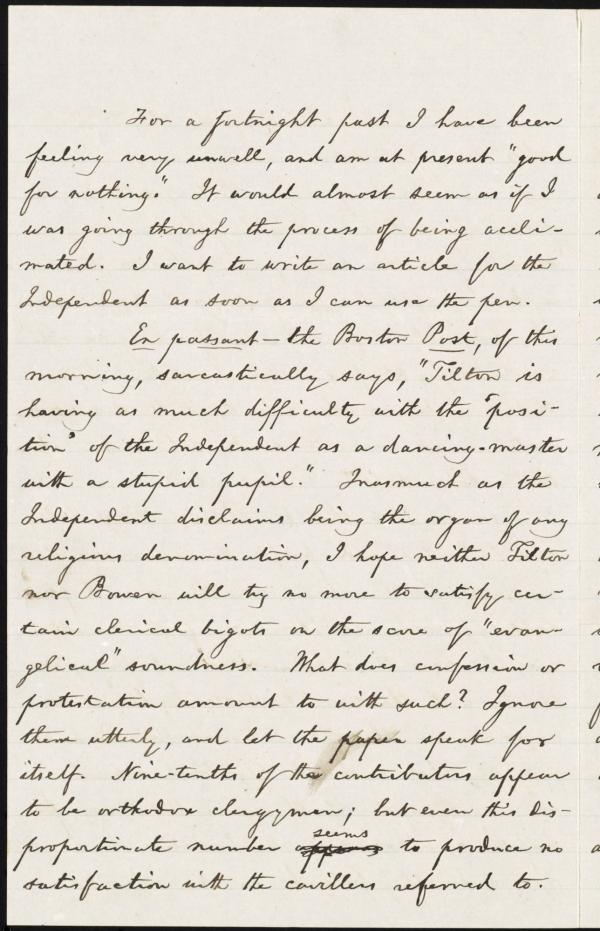 For a fortnight past I have been
feeling very unwell, and am at present "good
for nothing." It would almost seem as if I
was going through the process of being accli-
mated. I want to write an article for the
Independent as soon as I can use the pen.
En passant — the Boston Post, of this
morning, sarcastically says, "Tilton is
having as much difficulty with the 'posi-
tion' of the Independent as a dancing-master
with a stupid pupil." Inasmuch as the
Independent disclaims being the organ of any
religious denomination, I hope neither Tilton
nor Bowen will try no more to satisfy cer-
tain clerical bigots on the score of "evan-
gelical" soundness. What does confession or
protestation amount to with such? Ignore
them utterly, and let the paper speak for
itself. Nine-tenths of the contributors appear
to be orthodox clergymen; but even this dis-
proportionate number seems to produce no
satisfaction with the cavillers referred to.